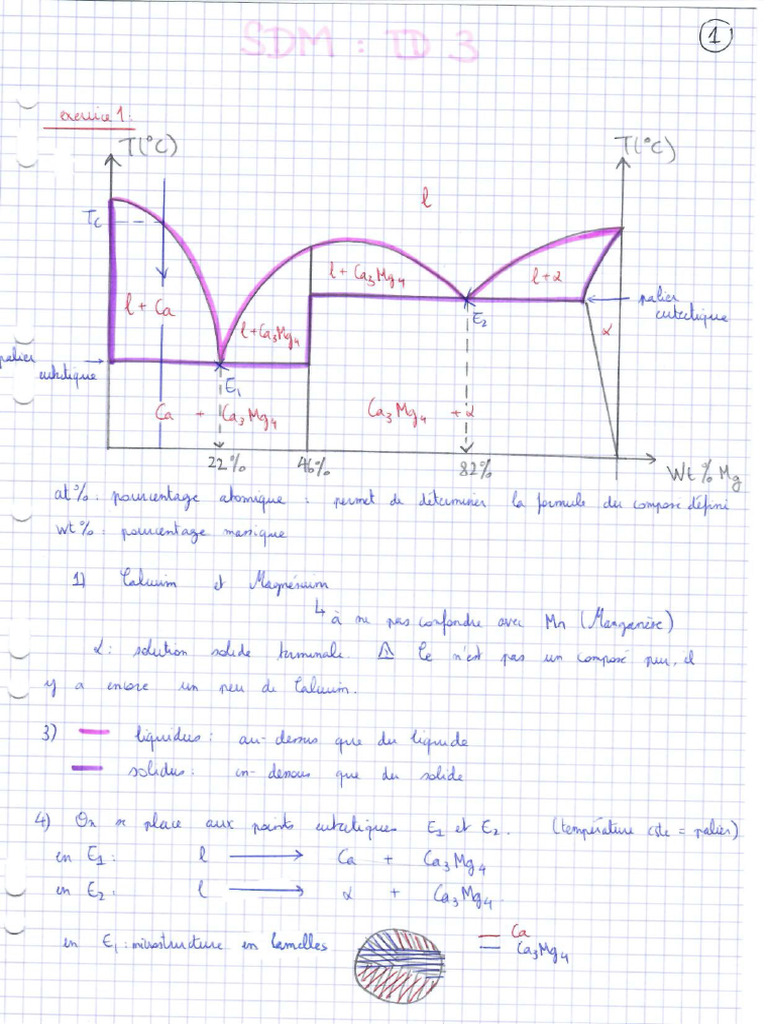 1
SDM : TD 3
exercice 1 :
T(°C)
T(°C)
Tc
l
l + Ca
l + Ca3Mg4
l + Ca3Mg4
l + α
palier eutectique
E2
α
palier eutectique
E1
Ca + Ca3Mg4
Ca3Mg4 + α
22%
46%
82%
Wt % Mg
at% : pourcentage atomique : permet de déterminer la formule du composé défini
wt% : pourcentage massique
1) Calcium et Magnésium
↳ à ne pas confondre avec Mn (Manganèse)
α : solution solide terminale. ⚠ Ce n'est pas un composé pur, il
y a encore un peu de Calcium.
3) liquidus : au-dessus que du liquide
solidus : en-dessous que du solide
4) On se place aux points eutectiques E1 et E2. (température cste = palier)
en E1 : l → Ca + Ca3Mg4
en E2 : l → α + Ca3Mg4.
en E1 : microstructure en lamelles
Ca
Ca3Mg4